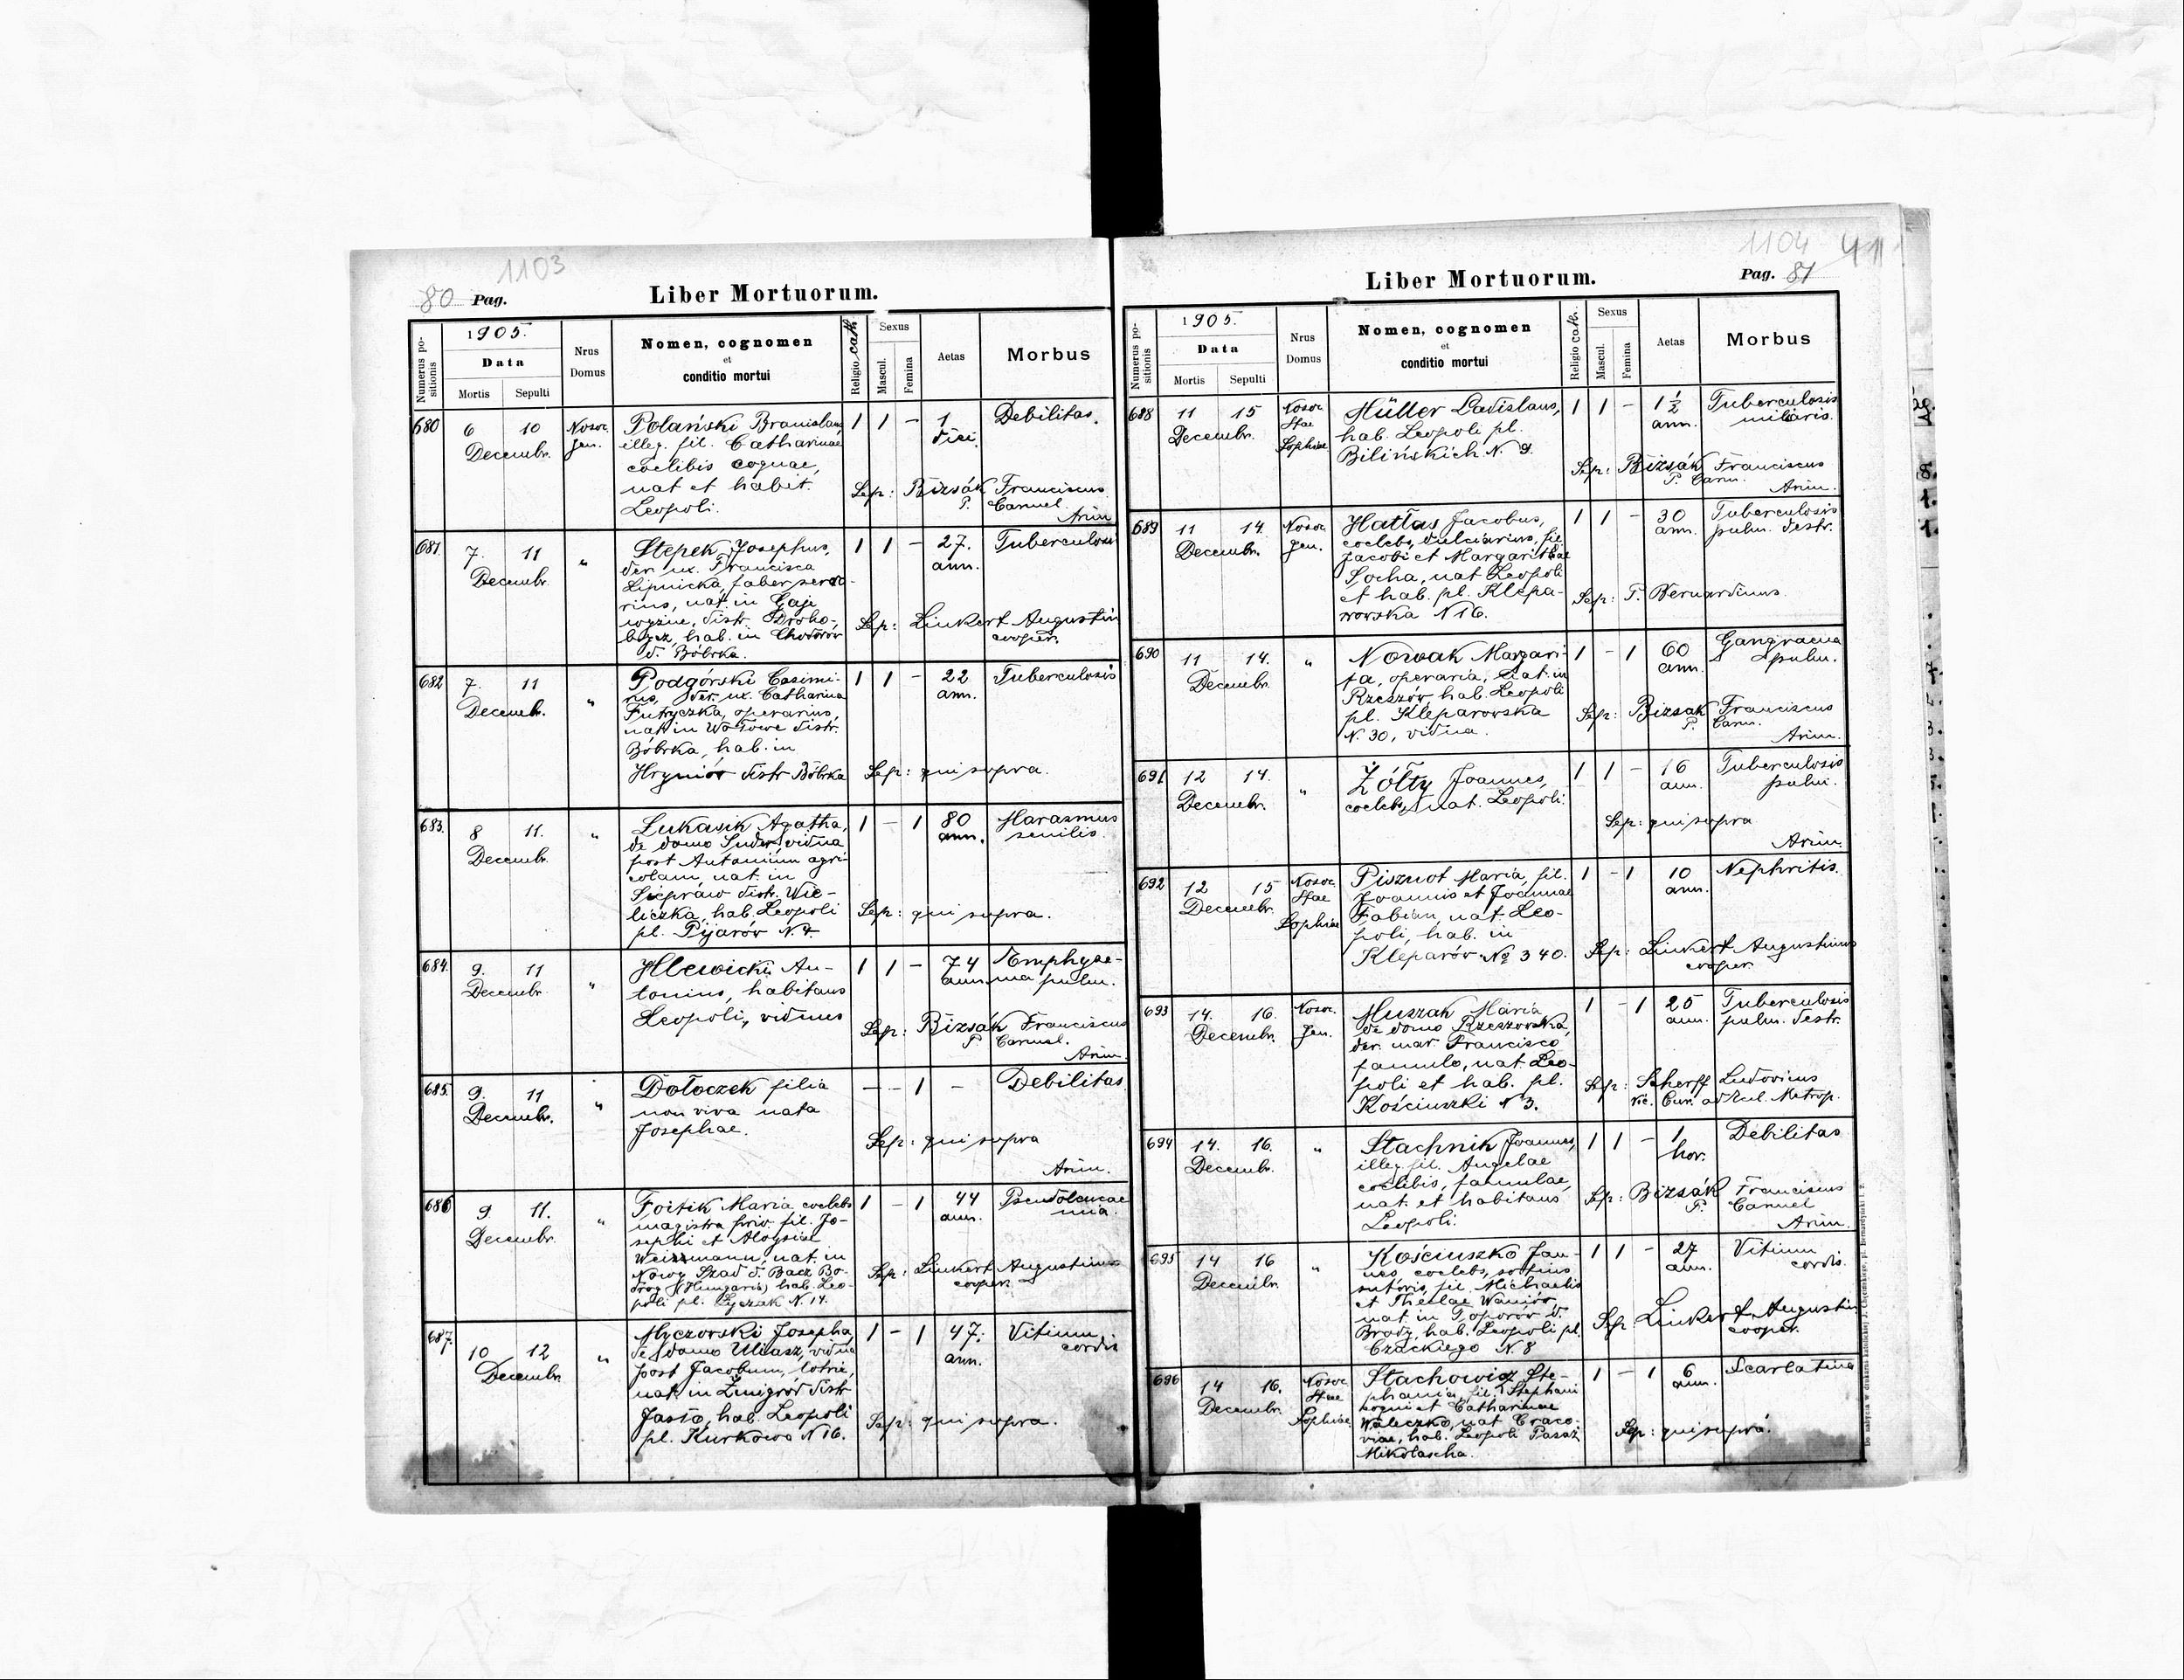 1103
80 Pag. Liber Mortuorum.
Numerus positionis
1905.
Data
Mortis Sepulti
Nrus Domus
Nomen, cognomen
et
conditio mortui
Religio cath.
Sexus
Mascul. Femina
Aetas
Morbus
680 6 10 Decembr. Nosoc. gen.
Polański Bronislaus
illeg. fil. Catharinae
coelibis coquae,
nat et habit.
Leopoli.
1 1 - 1 diei. Debilitas.
Sep: Bizsák Franciscus
P. Carmel.
Arim
681. 7. 11 Decembr. "
Stepek Josephus,
der. ux. Francisca
Lipnicka, faber serra-
rius, nat. in Gaje
wyżne, distr. Droho-
bycz, hab. in Chodorów
d. Bóbrka.
1 1 - 27. ann. Tuberculosis
Sep: Linkert Augustin
cooper.
682 7. 11 Decemb. "
Podgórski Casimi-
rus, der. ux. Catharina
Futryczka, operarius,
nat. in Wołowe distr.
Bóbrka, hab. in
Hryniów distr Bóbrka
1 1 - 22 ann. Tuberculosis
Sep: qui supra.
683. 8 11. Decembr. "
Lukasik Agatha,
de domo Suder, vidua
post Antonium agri-
colam, nat. in
Siepraw distr. Wie-
liczka, hab. Leopoli
pl. Pijarów N. 4.
1 - 1 80 ann. Marasmus
senilis.
Sep: qui supra.
684. 9. 11 Decembr "
Hlewicki An-
tonius, habitans
Leopoli, viduus
1 1 - 74 ann. Emphyse-
ma pulm.
Sep: Bizsák Franciscus
P. Carmel.
Arim.
685. 9. 11 Decembr. "
Dołoczek filia
non viva nata
Josephae.
- - 1 - Debilitas
Sep: qui supra
Arim.
686 9 11. Decembr. "
Foitik Maria coelebs
magistra priv. fil. Jo-
sephi et Aloysiae
Weissmann, nat. in
Nowy Szad d. Bacz Bo-
drog (Hungaris) hab. Leo-
poli pl. Łyczak N. 14.
1 - 1 44 ann. Pseudoleucae
mia.
Sep: Linkert Augustinus
cooper.
687. 10 12 Decembr. "
Myczorski Josepha,
de domo Uliasz, vidua
post Jacobum, lotrix,
nat. in Żmigród distr
Jasło, hab. Leopoli
pl. Kurkowa N 16.
1 - 1 47. ann. Vitium
cordis
Sep: qui supra.
1104
Liber Mortuorum. Pag. 81
Numerus positionis
1905.
Data
Mortis Sepulti
Nrus Domus
Nomen, cognomen
et
conditio mortui
Religio cath.
Sexus
Mascul. Femina
Aetas
Morbus
688 11 15 Decembr. Nosoc. Stae Sophiae
Müller Ladislaus,
hab. Leopoli pl.
Bilińskich N. 9.
1 1 - 1 1/2 ann. Tuberculosis
miliaris.
Sep: Bizsák Franciscus
P. Carm.
Arim.
689 11 14. Decembr. Nosoc. gen.
Hattas Jacobus,
coelebs, dulciarius, fil.
Jacobi et Margarithae
Socha, nat Leopoli
et hab. pl. Klepa-
rowska N 16.
1 1 - 30 ann. Tuberculosis
pulm. destr.
Sep: P. Bernardinus.
690 11 14. Decembr. "
Nowak Margari-
ta, operaria, nat. in
Rzeszów, hab. Leopoli
pl. Kleparowska
N. 30, vidua.
1 - 1 60 ann. Gangraena
pulm.
Sep: Bizsak Franciscus
P. Carm.
Arim.
691 12 14. Decembr. "
Żółty Joannes,
coelebs, nat. Leopoli.
1 1 - 16 ann. Tuberculosis
pulm.
Sep: qui supra
Arim.
692 12 15 Decembr. Nosoc. Stae Sophiae
Pisznot Maria, fil.
Joannis et Joannae
Fabian, nat. Leo-
poli, hab. in
Kleparów No 340.
1 - 1 10 ann. Nephritis.
Sep: Linkert Augustinus
cooper.
693 14. 16. Decembr. Nosoc. Gen.
Muszak Maria
de domo Rzeszowska,
der. mar. Francisco
famulo, nat Leo-
poli et hab. pl.
Kościuszki N 3.
1 - 1 25 ann. Tuberculosis
pulm. destr.
Sep: Scherff Ludovicus
Vic. Cur. ad Eccl. Metrop.
694 14. 16. Decembr. "
Stachnik Joannes,
illeg. fil. Angelae
coelibis, famulae,
nat. et habitans
Leopoli.
1 1 - 1 hor. Debilitas
Sep: Bizsák Franciscus
P. Carmel
Arim.
695 14 16 Decembr. "
Kościuszko Joan-
nes coelebs, socius
sutoris, fil. Michaelis
et Theclae Waniów,
nat in Toporów d.
Brody, hab. Leopoli pl.
Czackiego N 8
1 1 - 27 ann. Vitium
cordis.
Sep Linkert Augustin
cooper.
696 14 16. Decembr. Nosoc. Stae Sophiae
Stachowicz Ste-
phania, fil. Stephani
coqui et Catharinae
Waleczko, nat Craco-
viae, hab. Leopoli Pasaż
Mikolascha.
1 - 1 6 ann. Scarlatina
Sep: qui supra.